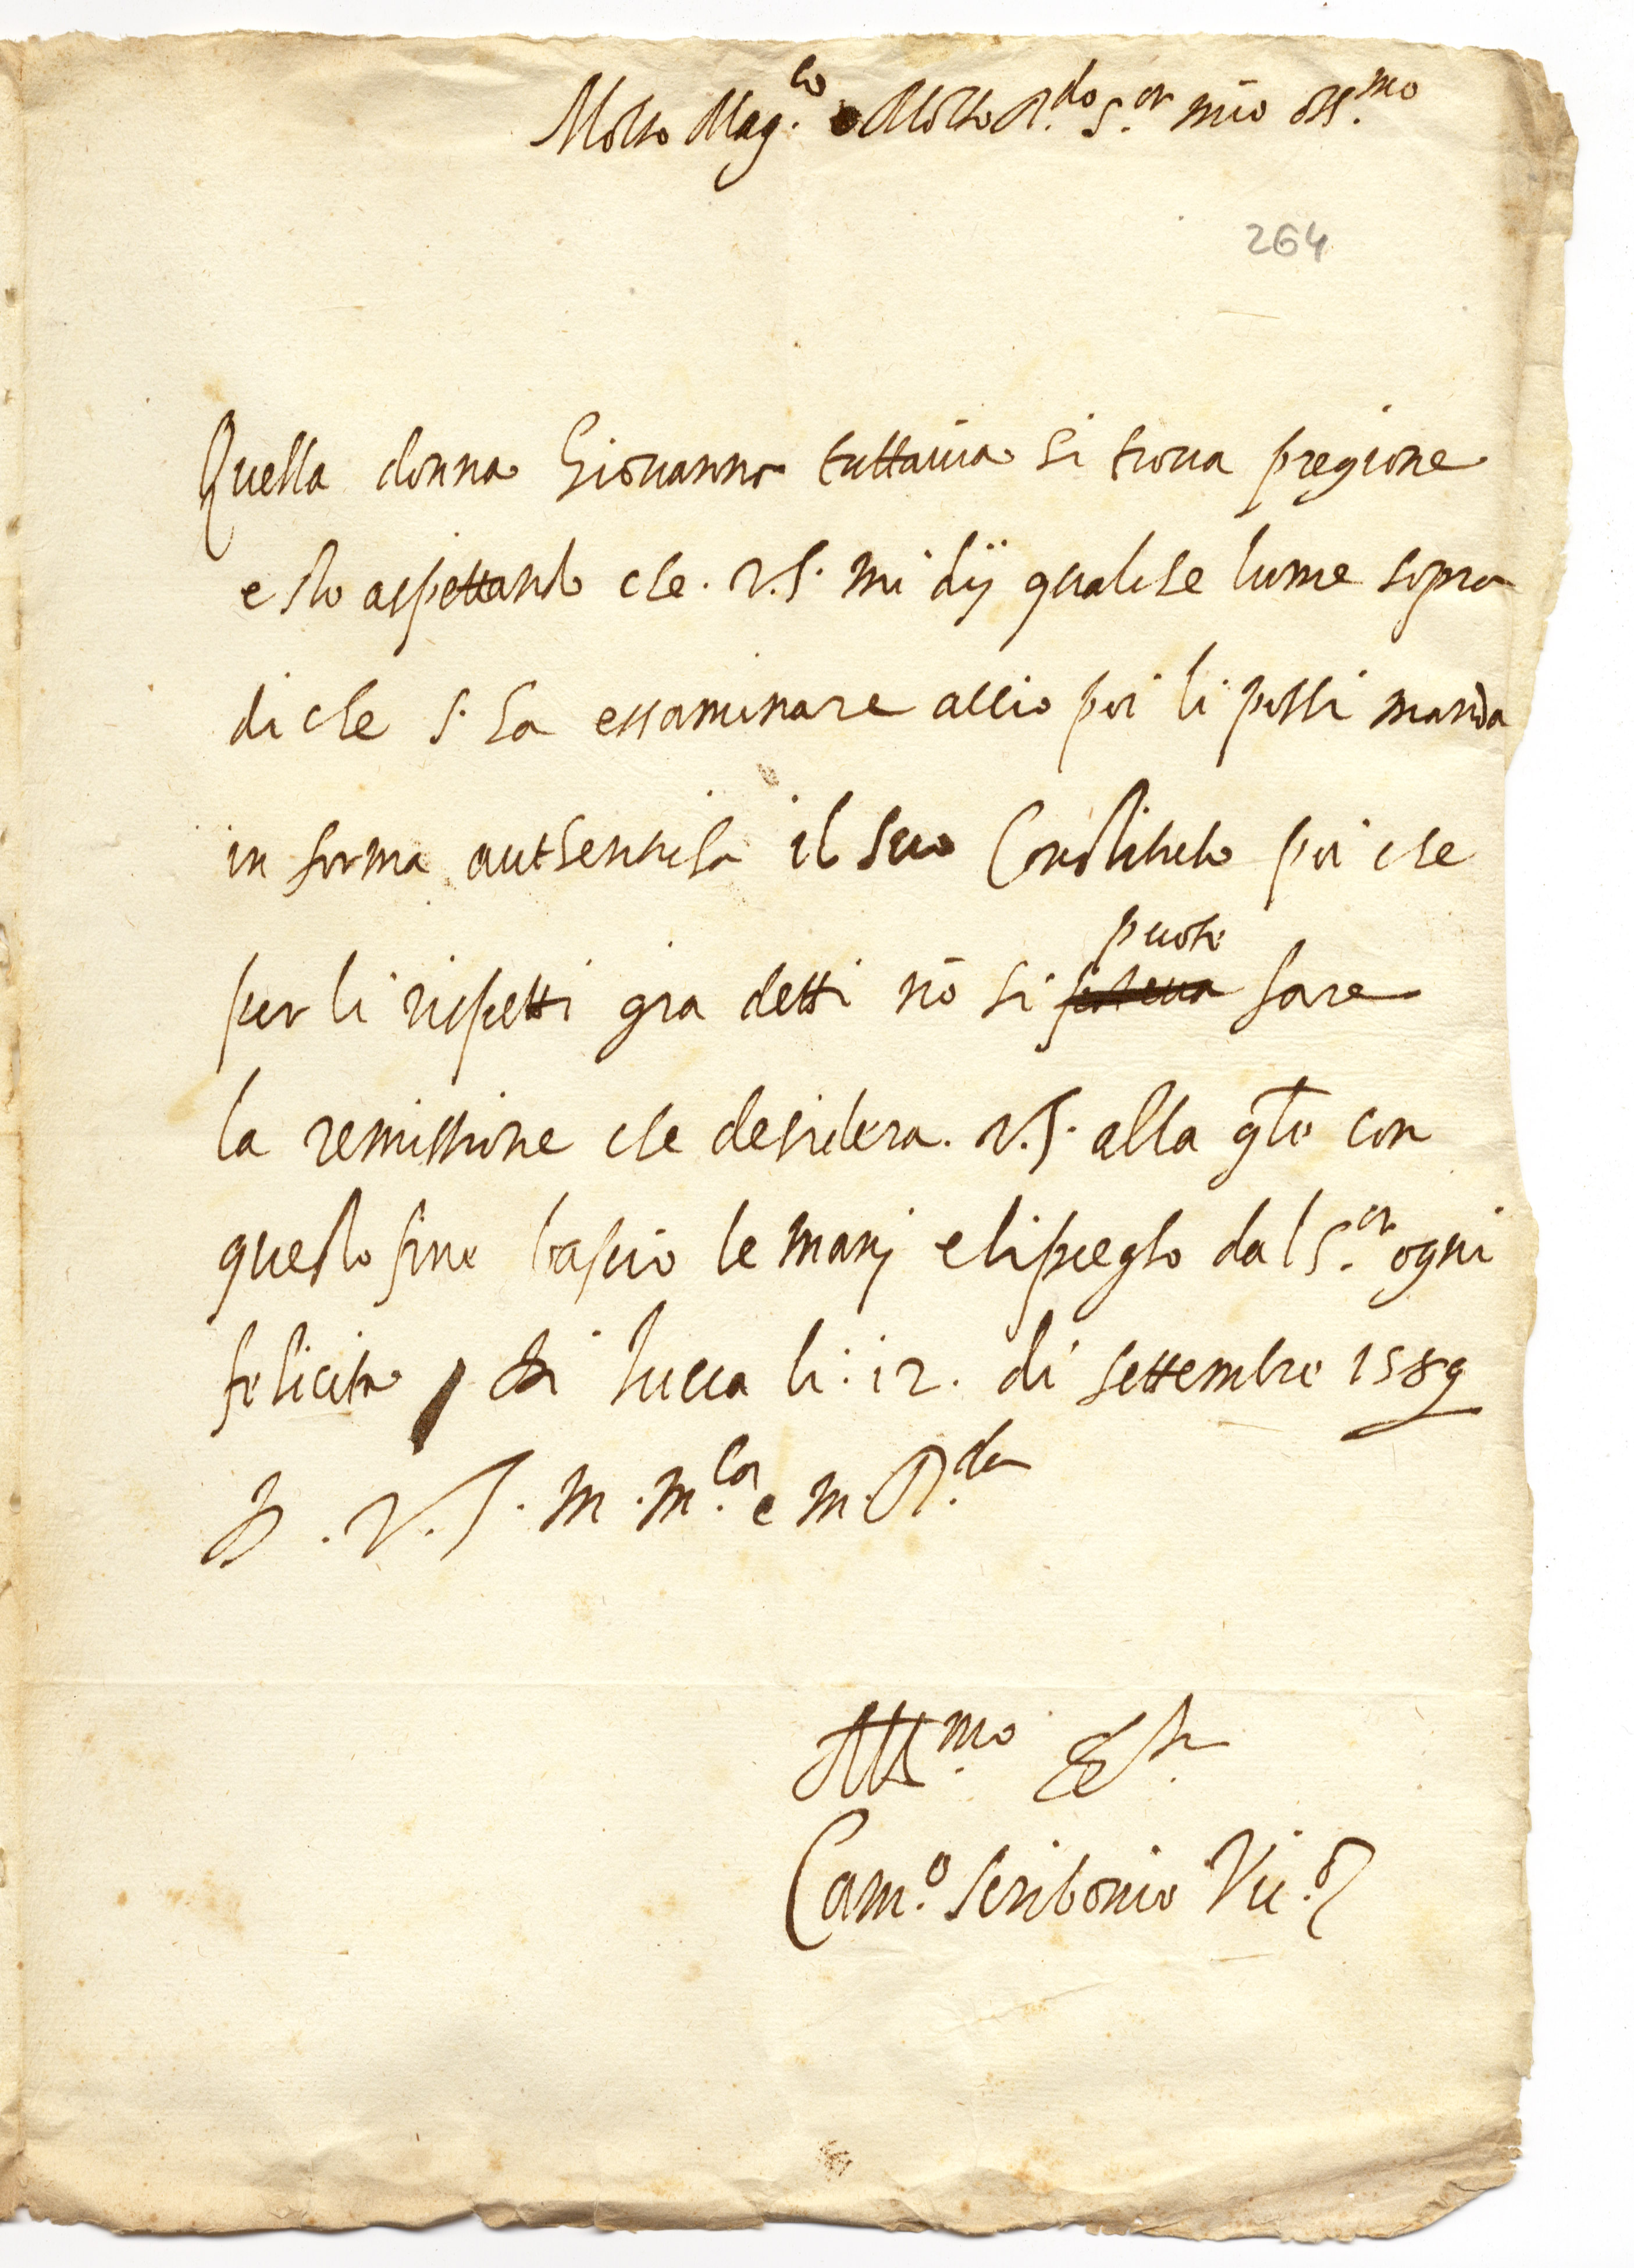 Molto Mag.co e Molto R.do S.or mio oss.mo
264
Quella donna Giovanna tuttavia si trova pregione
e sto aspettando che. V.S. mi dij qualche lume sopra
di che s'ha essaminare accio poi li possi manda
in forma authenticha il suo Constituto poi che
puote
per li rispetti gia detti nō si poteva fare
la remissione che desidera. V.S. alla q̄le con
questo fine bascio le manj e li priegho dal S.or ogni
felicita, di Lucca li: 12. di settembre 1589
D. V. S. m. m.ca e m. R.da
Aff.mo
Cam.o Scribonio Vic.o